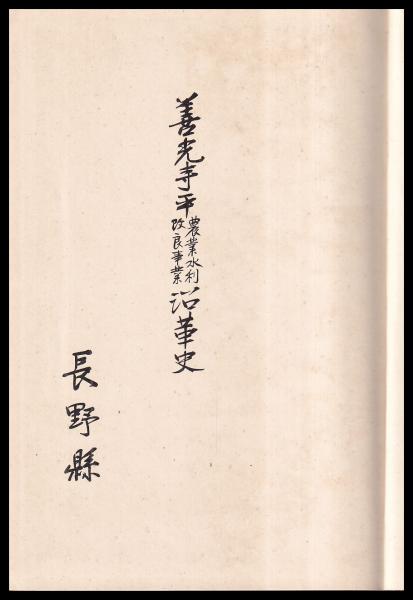 善光寺平農業水利改良事業沿革史
長野縣